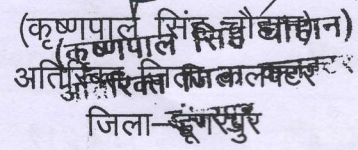 (कृष्णपाल सिंह चौहान)
अतिरिक्त जिला कलक्टर
जिला-डूंगरपुर